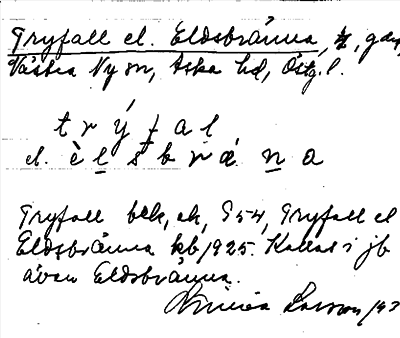 Tryfall el. Eldsbränna, gd,
Västra Ny sn, Aska hd, Östg. l.
trýfal
el. èlsbrána
Tryfall bek, ek, 954, Tryfall el
Eldsbränna kb 1925. Kallas i jb
även Eldsbränna.
Larsson